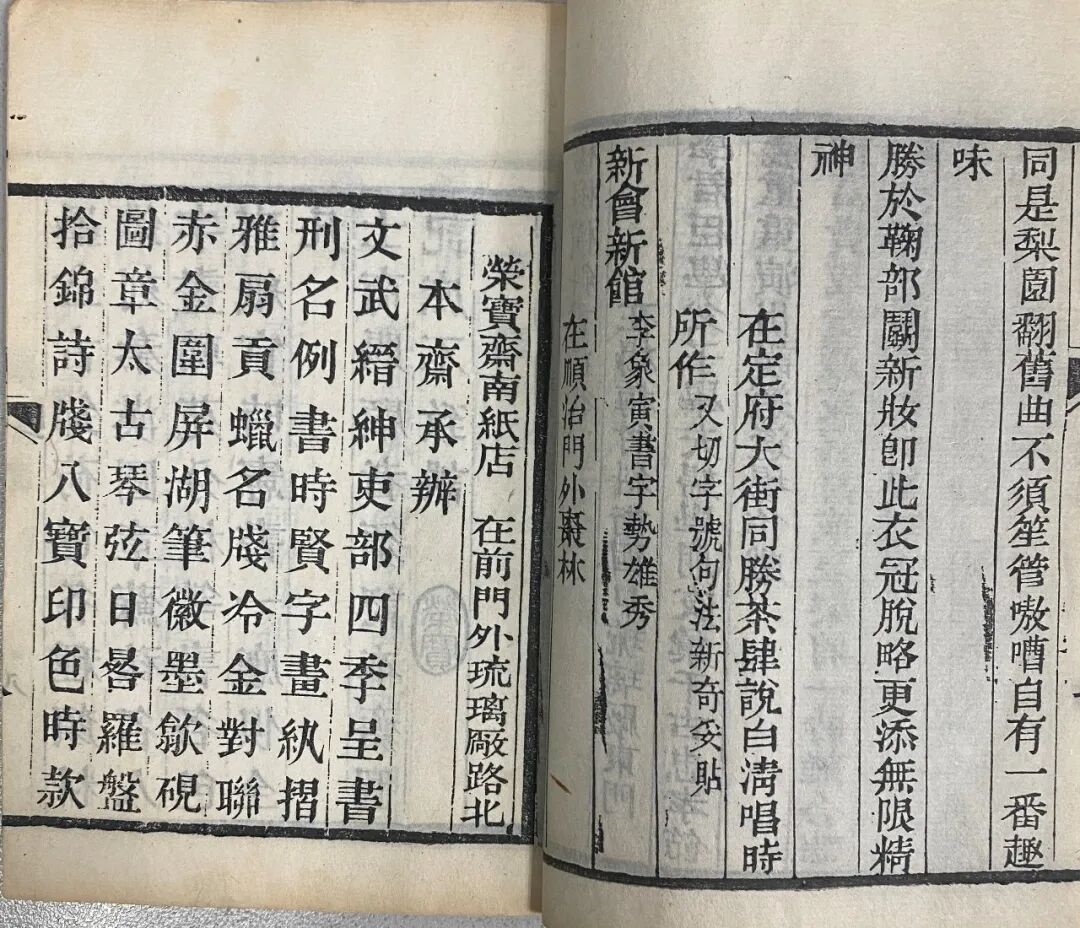 同是梨園翻舊曲不須笙管嗷嘈自有一番趣
味
勝於鞠部鬬新妝卽此衣冠脫略更添無限精
神
在定府大街同勝茶肆說白淸唱時
所作 又切字號句法新奇妥貼
新會新館
李象寅書字勢雄秀
在順治門外棗林
榮寶齋南紙店 在前門外琉璃廠路北
本齋承辦
文武縉紳吏部四季呈書
刑名例書時賢字畫紈摺
雅扇貢蠟名牋冷金對聯
赤金圍屏湖筆徽墨歙硯
圖章太古琴弦日晷羅盤
拾錦詩牋八寶印色時款